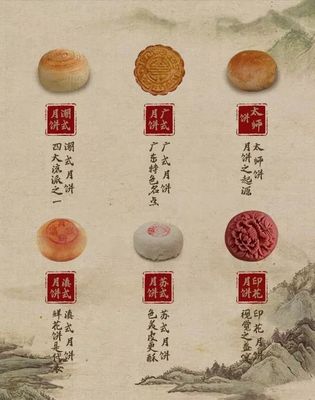 潮式
月饼
潮式月饼
四大流派之一
广式
月饼
广式月饼
广东特色名点
太师
饼
太师饼
月饼之起源
滇式
月饼
滇式月饼
鲜花饼是代表
苏式
月饼
苏式月饼
色美皮更酥
印花
月饼
印花月饼
视觉之盛宴